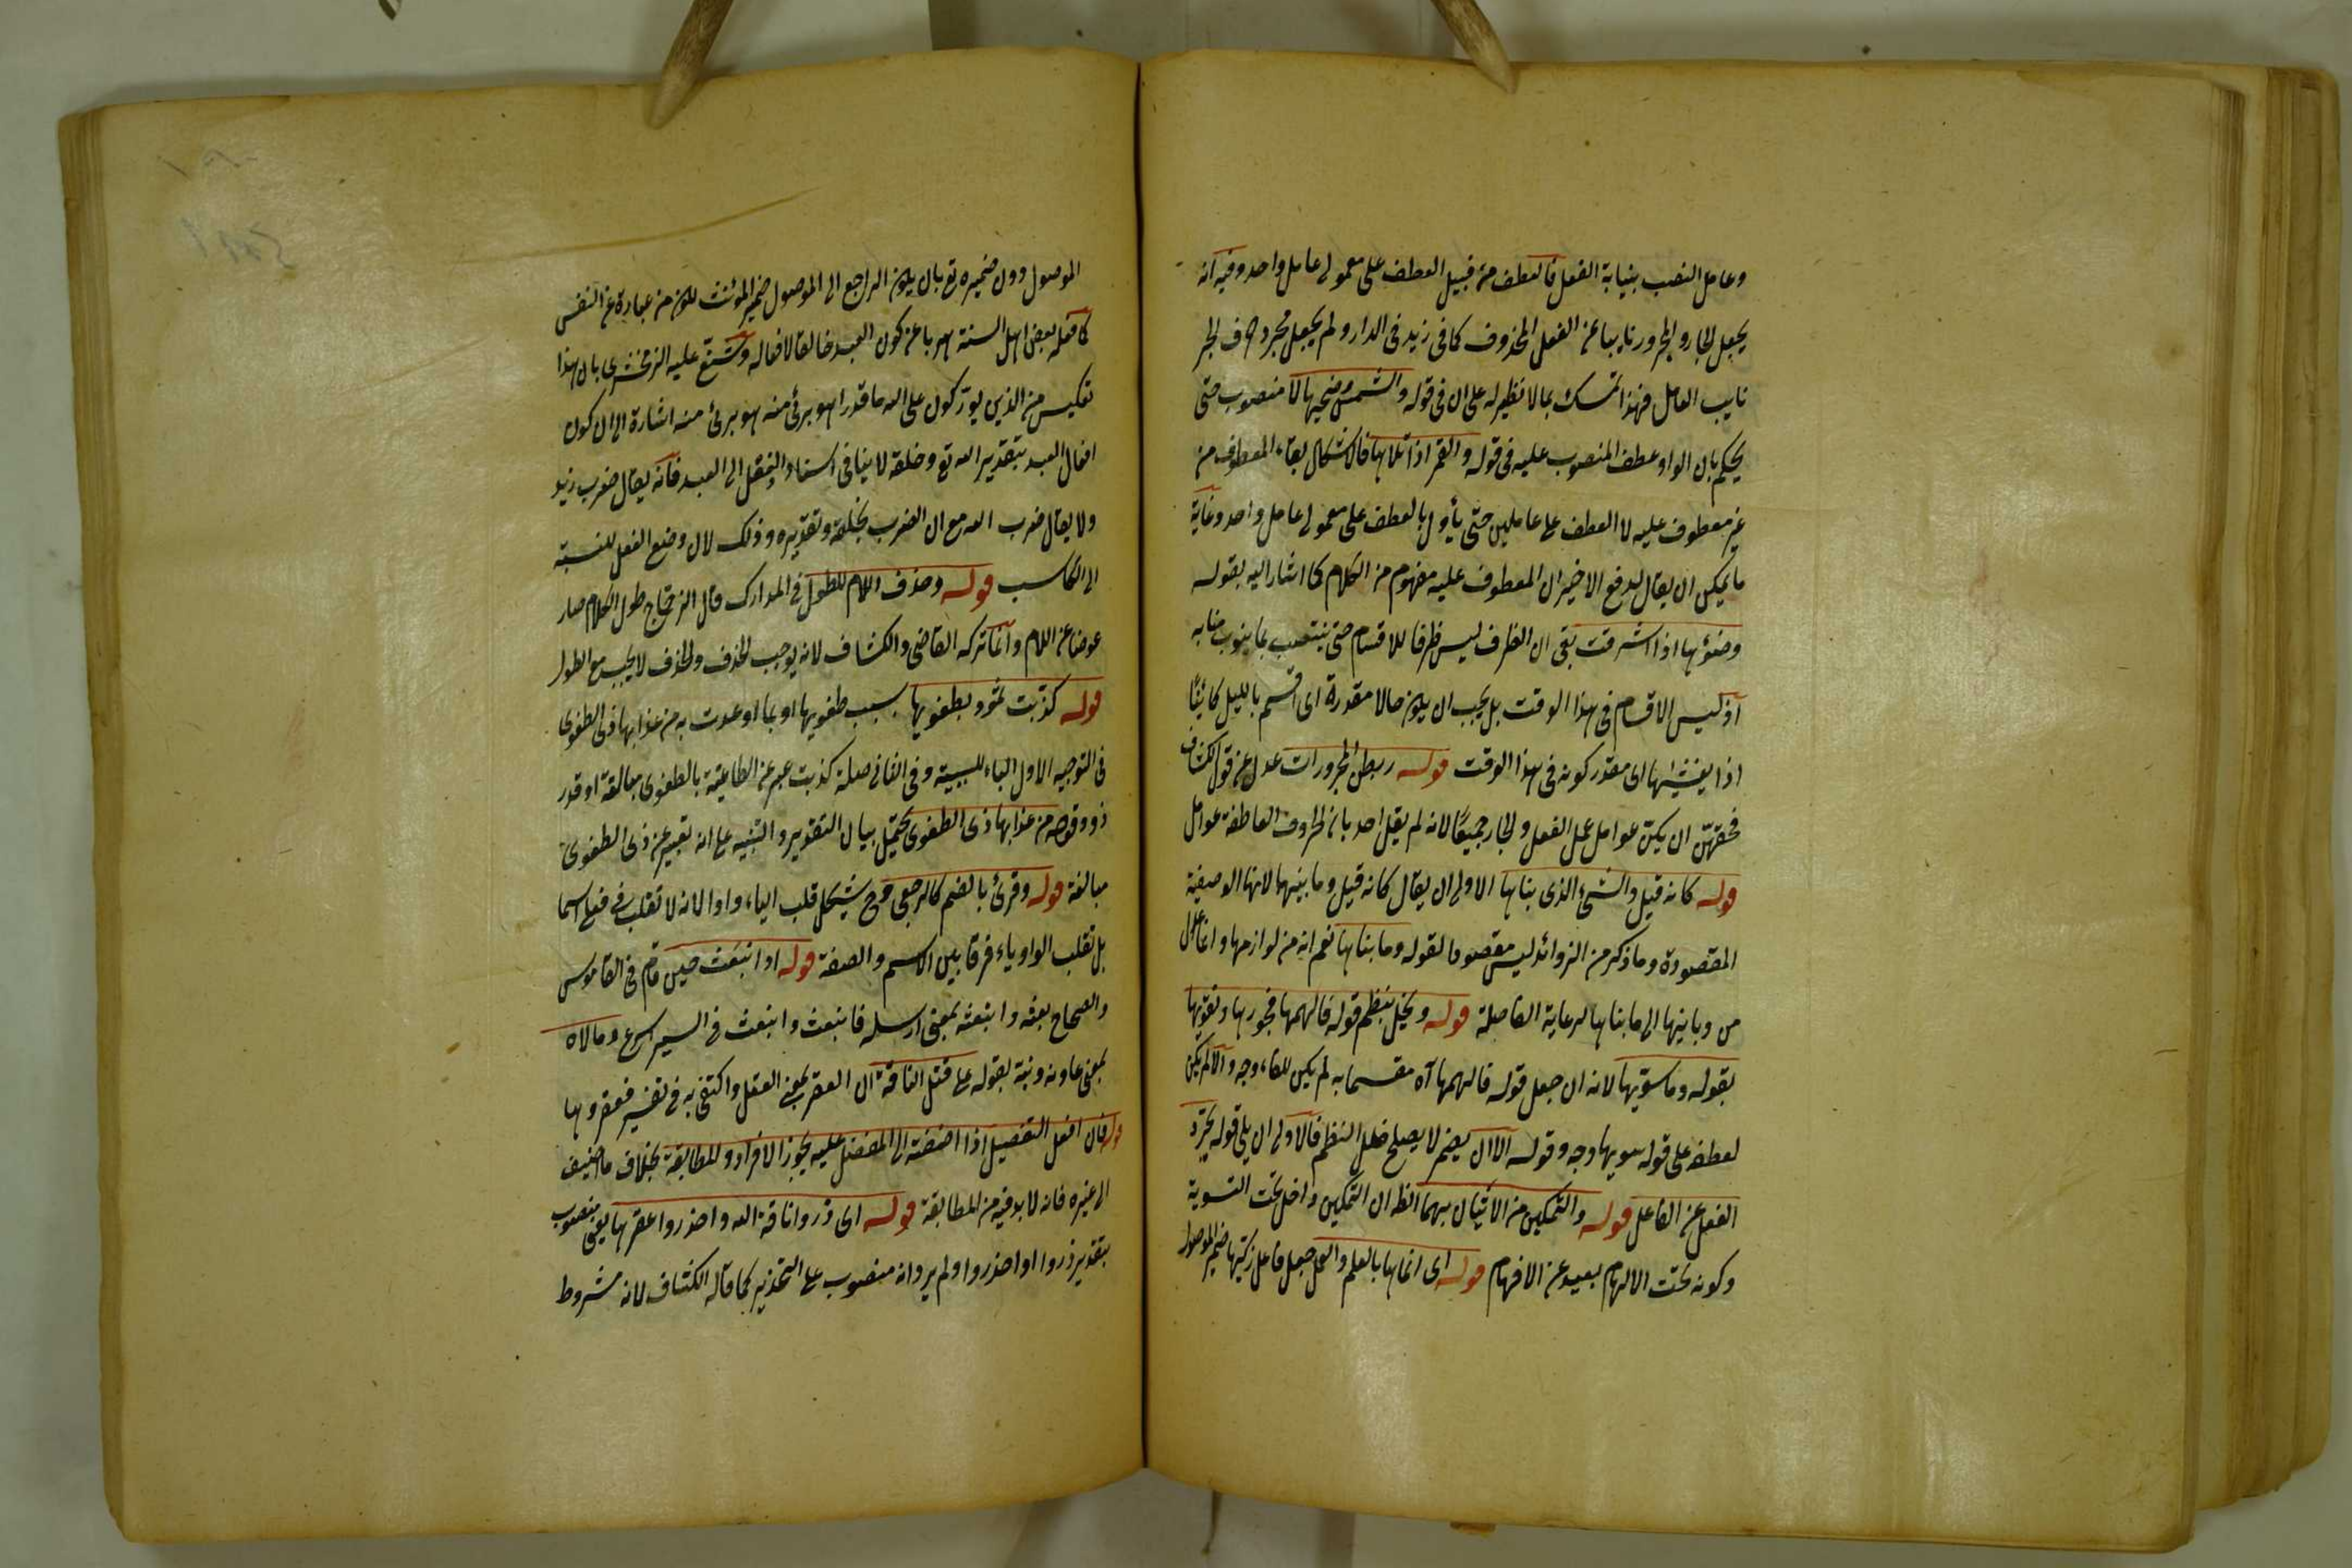 وعامل النصب بنيابة الفعل فالعطف من قبيل العطف على معمولى عامل واحد وفيه انه
يجعل الجار والمجرور نايبا عن الفعل المحذوف كما فى زيد فى الدار ولم يجعل مجرد حرف الجر
نايب العامل فهذا تمسك بما لا نظير له على ان فى قوله والشمس وضحيها لا منصوب حتى
يحكم بان الواو عطف المنصوب عليه فى قوله والقمر اذا تلاها فالاشكال بقاء المعطوف من
غير معطوف عليه لا العطف على عاملين حتى يأول بالعطف على معمولى عامل واحد وغاية
ما يمكن ان يقال لدفع الاخير ان المعطوف عليه مفهوم من الكلام كما اشار اليه بقوله
وضوئها اذا اشرقت بقى ان الظرف ليس ظرفا للاقسام حتى ينتصب بما ينوب منابه
اذ ليس الاقسام فى هذا الوقت بل يجب ان يكون حالا مقدرة اى اقسم بالليل كائنًا
اذا يغشيها اى مقدر كونه فى هذا الوقت قوله ربطن المجرورات عدل عن قول الكشاف
فحقهن ان يكن عوامل عمل الفعل والجار جميعًا لانه لم يقل احد بان الحروف العاطفة عوامل
قوله كانه قيل والشىء الذى بناها الاولى ان يقال كانه قيل وما بينهما لانها الوصفية
المقصودة وما ذكر من الزوائد ليس مقصودا لقوله وما بناها نعم انه من لوازمها وانما عدل
من وبانيها الى ما بناها لرعاية الفاصلة قوله ويخل بنظم قوله فالهمها فجورها وتقويها
بقوله وما سويها لانه ان جعل قوله فالهمها آه مقسما به لم يكن للفاء وجه والا لم يكن
لعطفه على قوله سويها وجه وقوله الا ان يضمر لا يصلح خلل النظم فالاولى ان يلى قوله يجرد
الفعل عن الفاعل قوله والتمكين من الاتيان بهما الظ ان التمكين داخل تحت التسوية
وكونه تحت الالهام بعيد عن الافهام قوله اى انماها بالعلم والعمل جعل فاعل زكيها ضمير الموصول
الموصول دون ضميره تع بان يكون الراجع الى الموصول ضمير المؤنث لكون من عبارة عن النفس
كما فعله بعض اهل السنة هربا عن كون العبد خالقا لافعاله وشنع عليه الزمخشرى بان هذا
تعكيس من الذين يوركون على الله ما قدرا هو برئ منه هو برئ منه اشارة الى ان كون
افعال العبد بتقدير الله تع وخلقه لا ينافى اسناد الفعل الى العبد فانه يقال ضرب زيد
ولا يقال ضرب الله مع ان الضرب بخلقه وتقديره وذلك لان وضع الفعل للنسبة
الى الكاسب قوله وحذف اللام للطول فى المدارك قال الزجاج طول الكلام صار
عوضا عن اللام وانما تركه القاضى والكشاف لانه يوجب الحذف والحذف لا يجب مع الطول
قوله كذبت ثمود بطغويها بسبب طغويها او بما اوعدت به من عذابها ذى الطغوى
فى التوجيه الاول الباء للسببية وفى الثانى صلة كذبت عبر عن الطاغية بالطغوى مبالغة او قدر
ذو وقوله من عذابها ذى الطغوى يحتمل بيان التقدير والتنبيه على انه تعبير عن ذى الطغوى
مبالغة قوله وقرئ بالضم كالرجعى وح يشكل قلب الياء واوا لانه لا تقلب فى فعلى اسما
بل تقلب الواو ياء فرقا بين الاسم والصفة قوله اذا انبعث حين قام فى القاموس
والصحاح بعثه وابتعثه بمعنى ارسله فانبعث وانبعث فى السير اسرع ومالاه
بمعنى عاونه ونبه بقوله على قتل الناقة ان العقر بمعنى القتل واكتفى به فى تفسير فعقروها
قوله فان افعل التفضيل اذا اضفته الى المفضل عليه يجوز الافراد والمطابقة بخلاف ما اضيف
الى غيره فانه لا بد فيه من المطابقة قوله اى ذروا ناقة الله واحذروا عقرها يعنى منصوب
بتقدير ذروا او احذروا ولم يرد انه منصوب على التحذير كما قاله الكشاف لانه مشروط